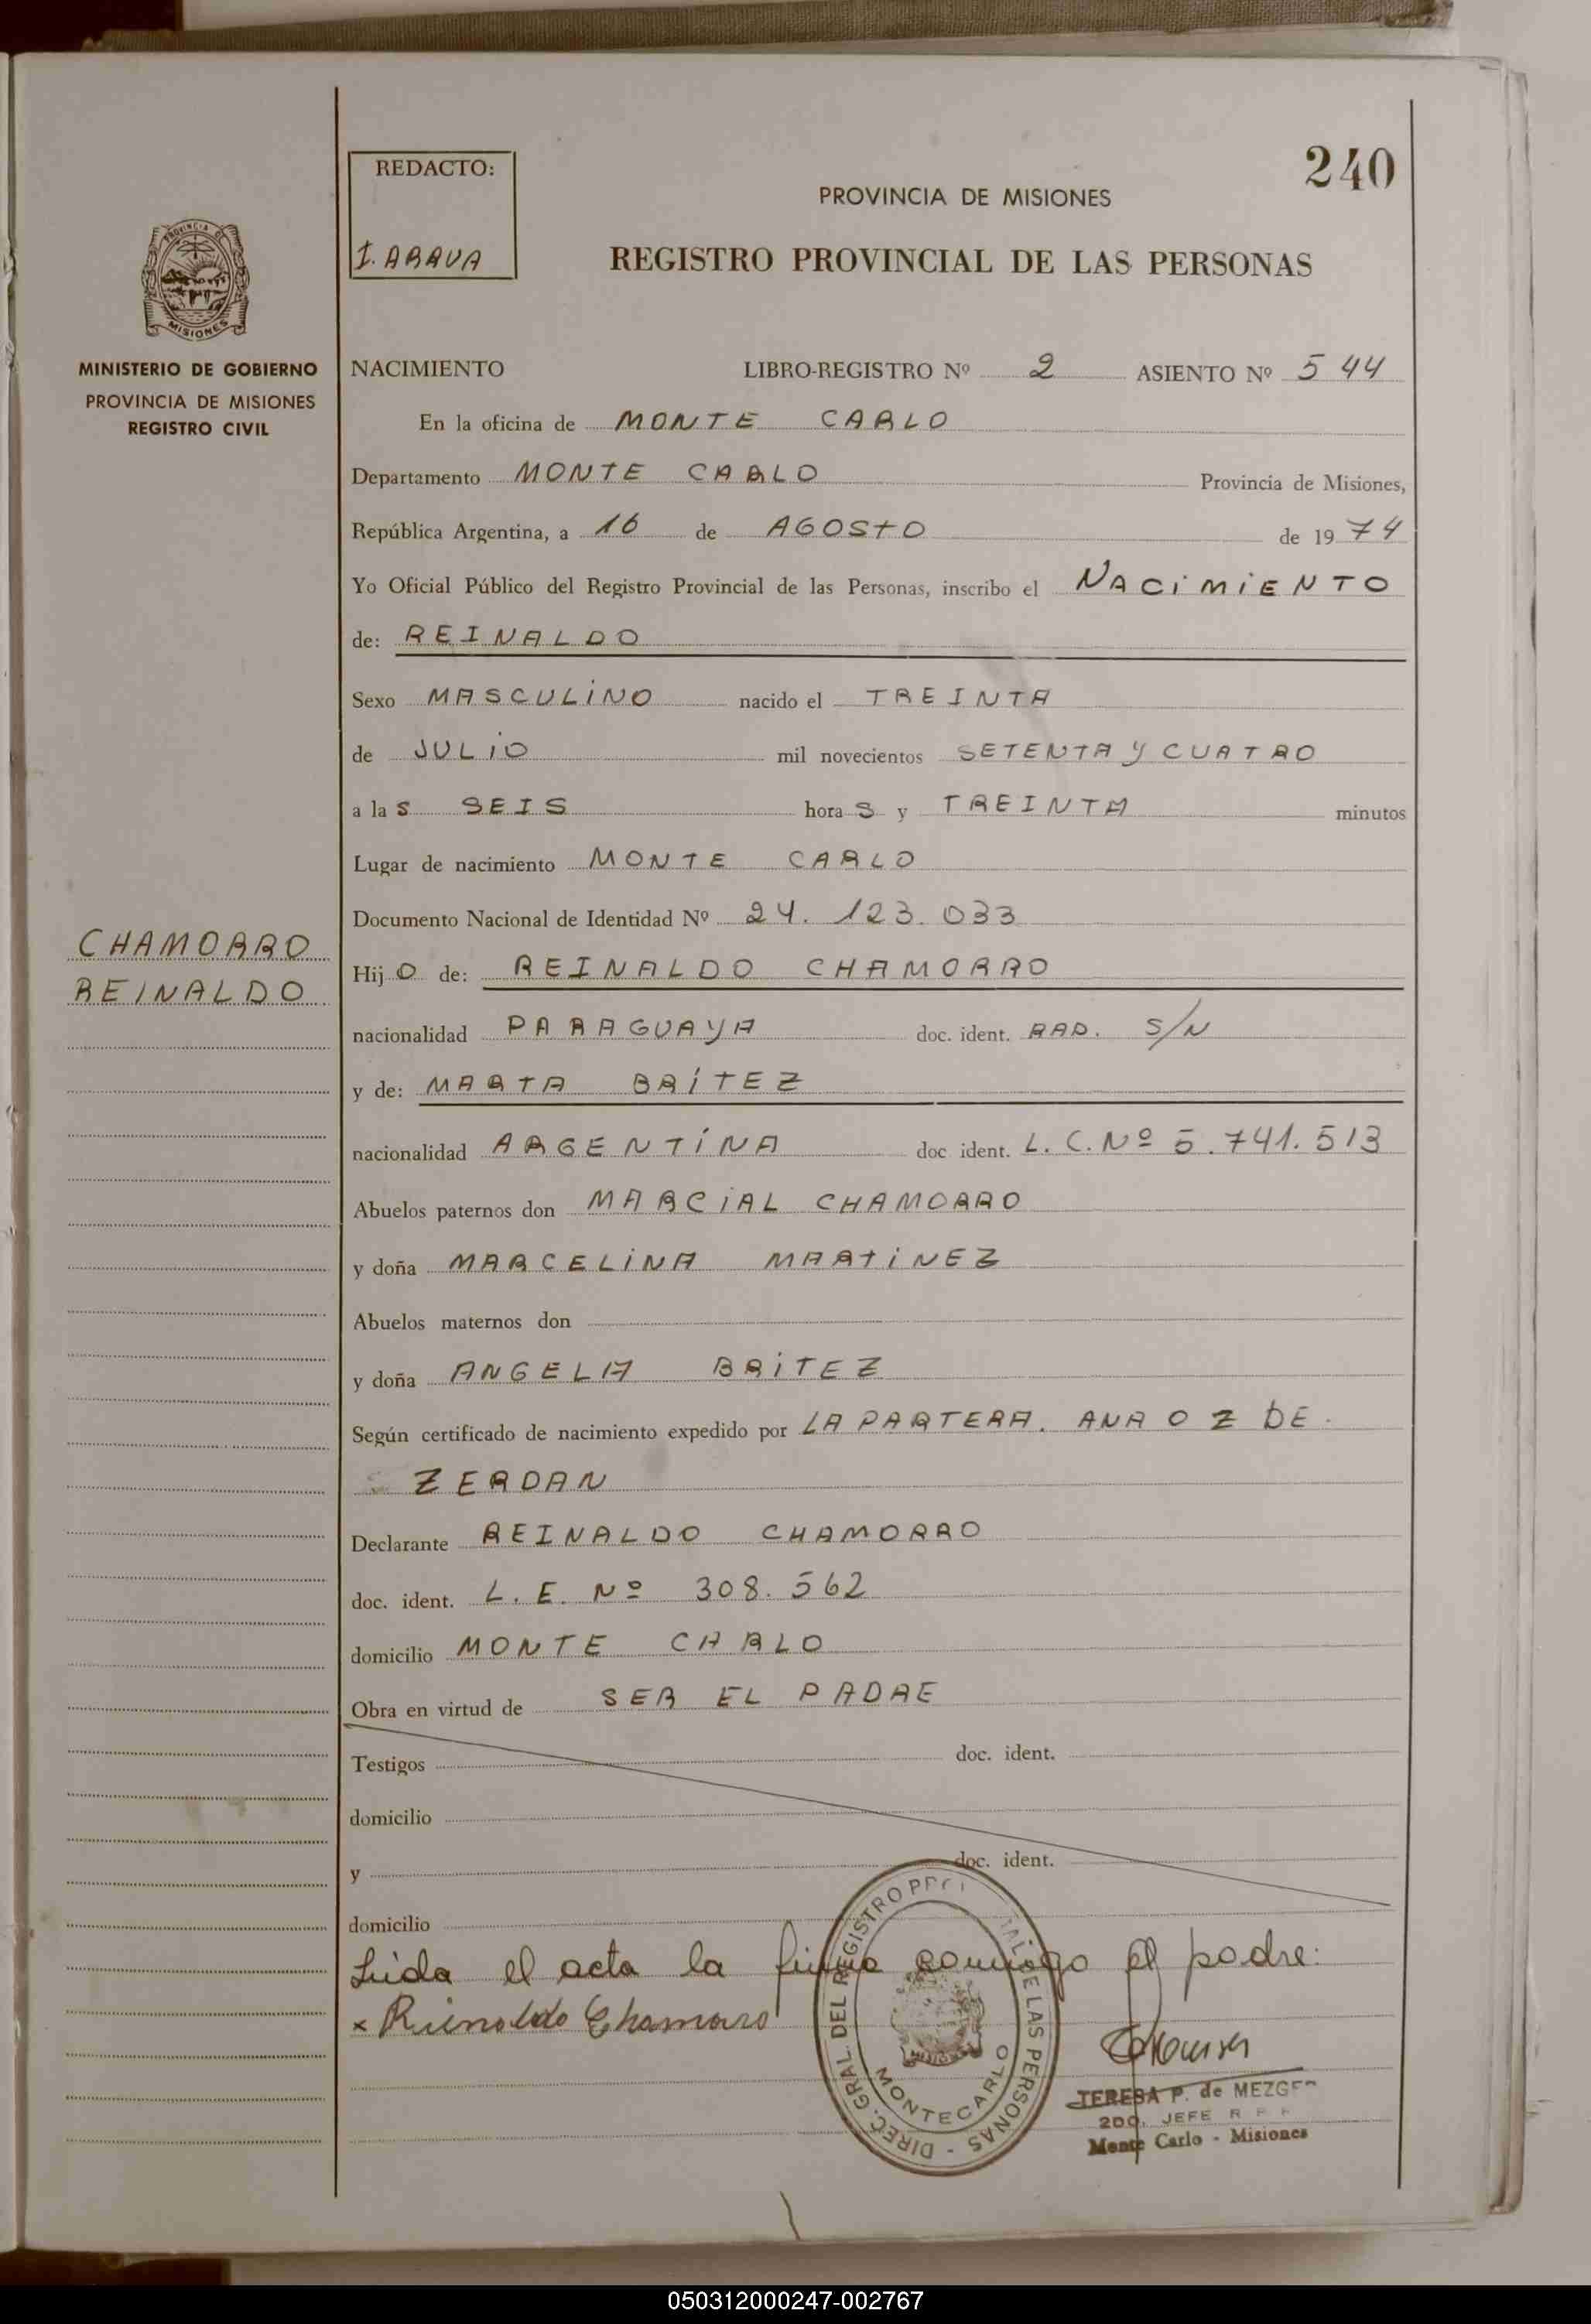 240
REDACTO:
I. ARAUA
PROVINCIA DE MISIONES
REGISTRO PROVINCIAL DE LAS PERSONAS
PROVINCIA DE
MISIONES
MINISTERIO DE GOBIERNO
PROVINCIA DE MISIONES
REGISTRO CIVIL
NACIMIENTO LIBRO-REGISTRO Nº 2 ASIENTO Nº 544
En la oficina de MONTE CARLO
Departamento MONTE CARLO Provincia de Misiones,
República Argentina, a 16 de AGOSTO de 1974
Yo Oficial Público del Registro Provincial de las Personas, inscribo el NACIMIENTO
de: REINALDO
Sexo MASCULINO nacido el TREINTA
de JULIO mil novecientos SETENTA Y CUATRO
a las SEIS horas y TREINTA minutos
Lugar de nacimiento MONTE CARLO
Documento Nacional de Identidad Nº 24.123.033
CHAMORRO
REINALDO
Hijo de: REINALDO CHAMORRO
nacionalidad PARAGUAYA doc. ident. S/N
y de: MARTA BRITEZ
nacionalidad ARGENTINA doc ident. L. C. Nº 5.741.513
Abuelos paternos don MARCIAL CHAMORRO
y doña MARCELINA MARTINEZ
Abuelos maternos don
y doña ANGELA BRITEZ
Según certificado de nacimiento expedido por LA PARTERA. ANA OZ DE
ZERDAN
Declarante REINALDO CHAMORRO
doc. ident. L. E. Nº 308.562
domicilio MONTE CARLO
Obra en virtud de SER EL PADRE
Testigos doc. ident.
domicilio
y doc. ident.
domicilio
Leida el acta la firma conmigo el padre:
x Reinaldo Chamorro
DIREC. GRAL. DEL REGISTRO DE LAS PERSONAS -
MONTECARLO
TERESA P. de MEZGER
JEFE
Monte Carlo - Misiones
050312000247-002767